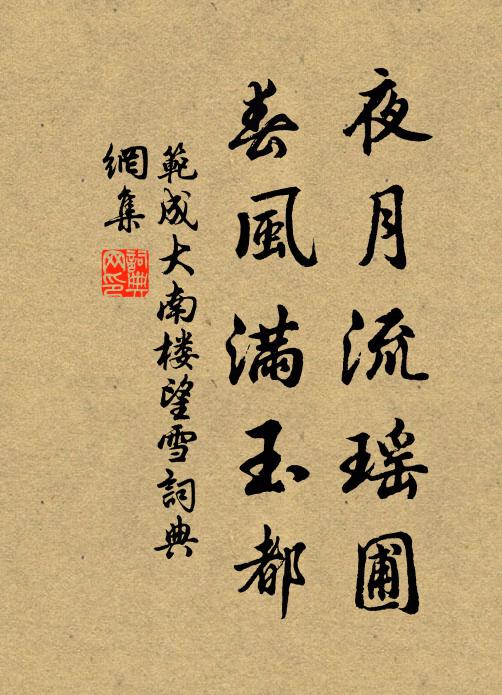 夜月流瑶圃
春風滿玉都
範成大南楼望雪詞典
網集
詞典网印